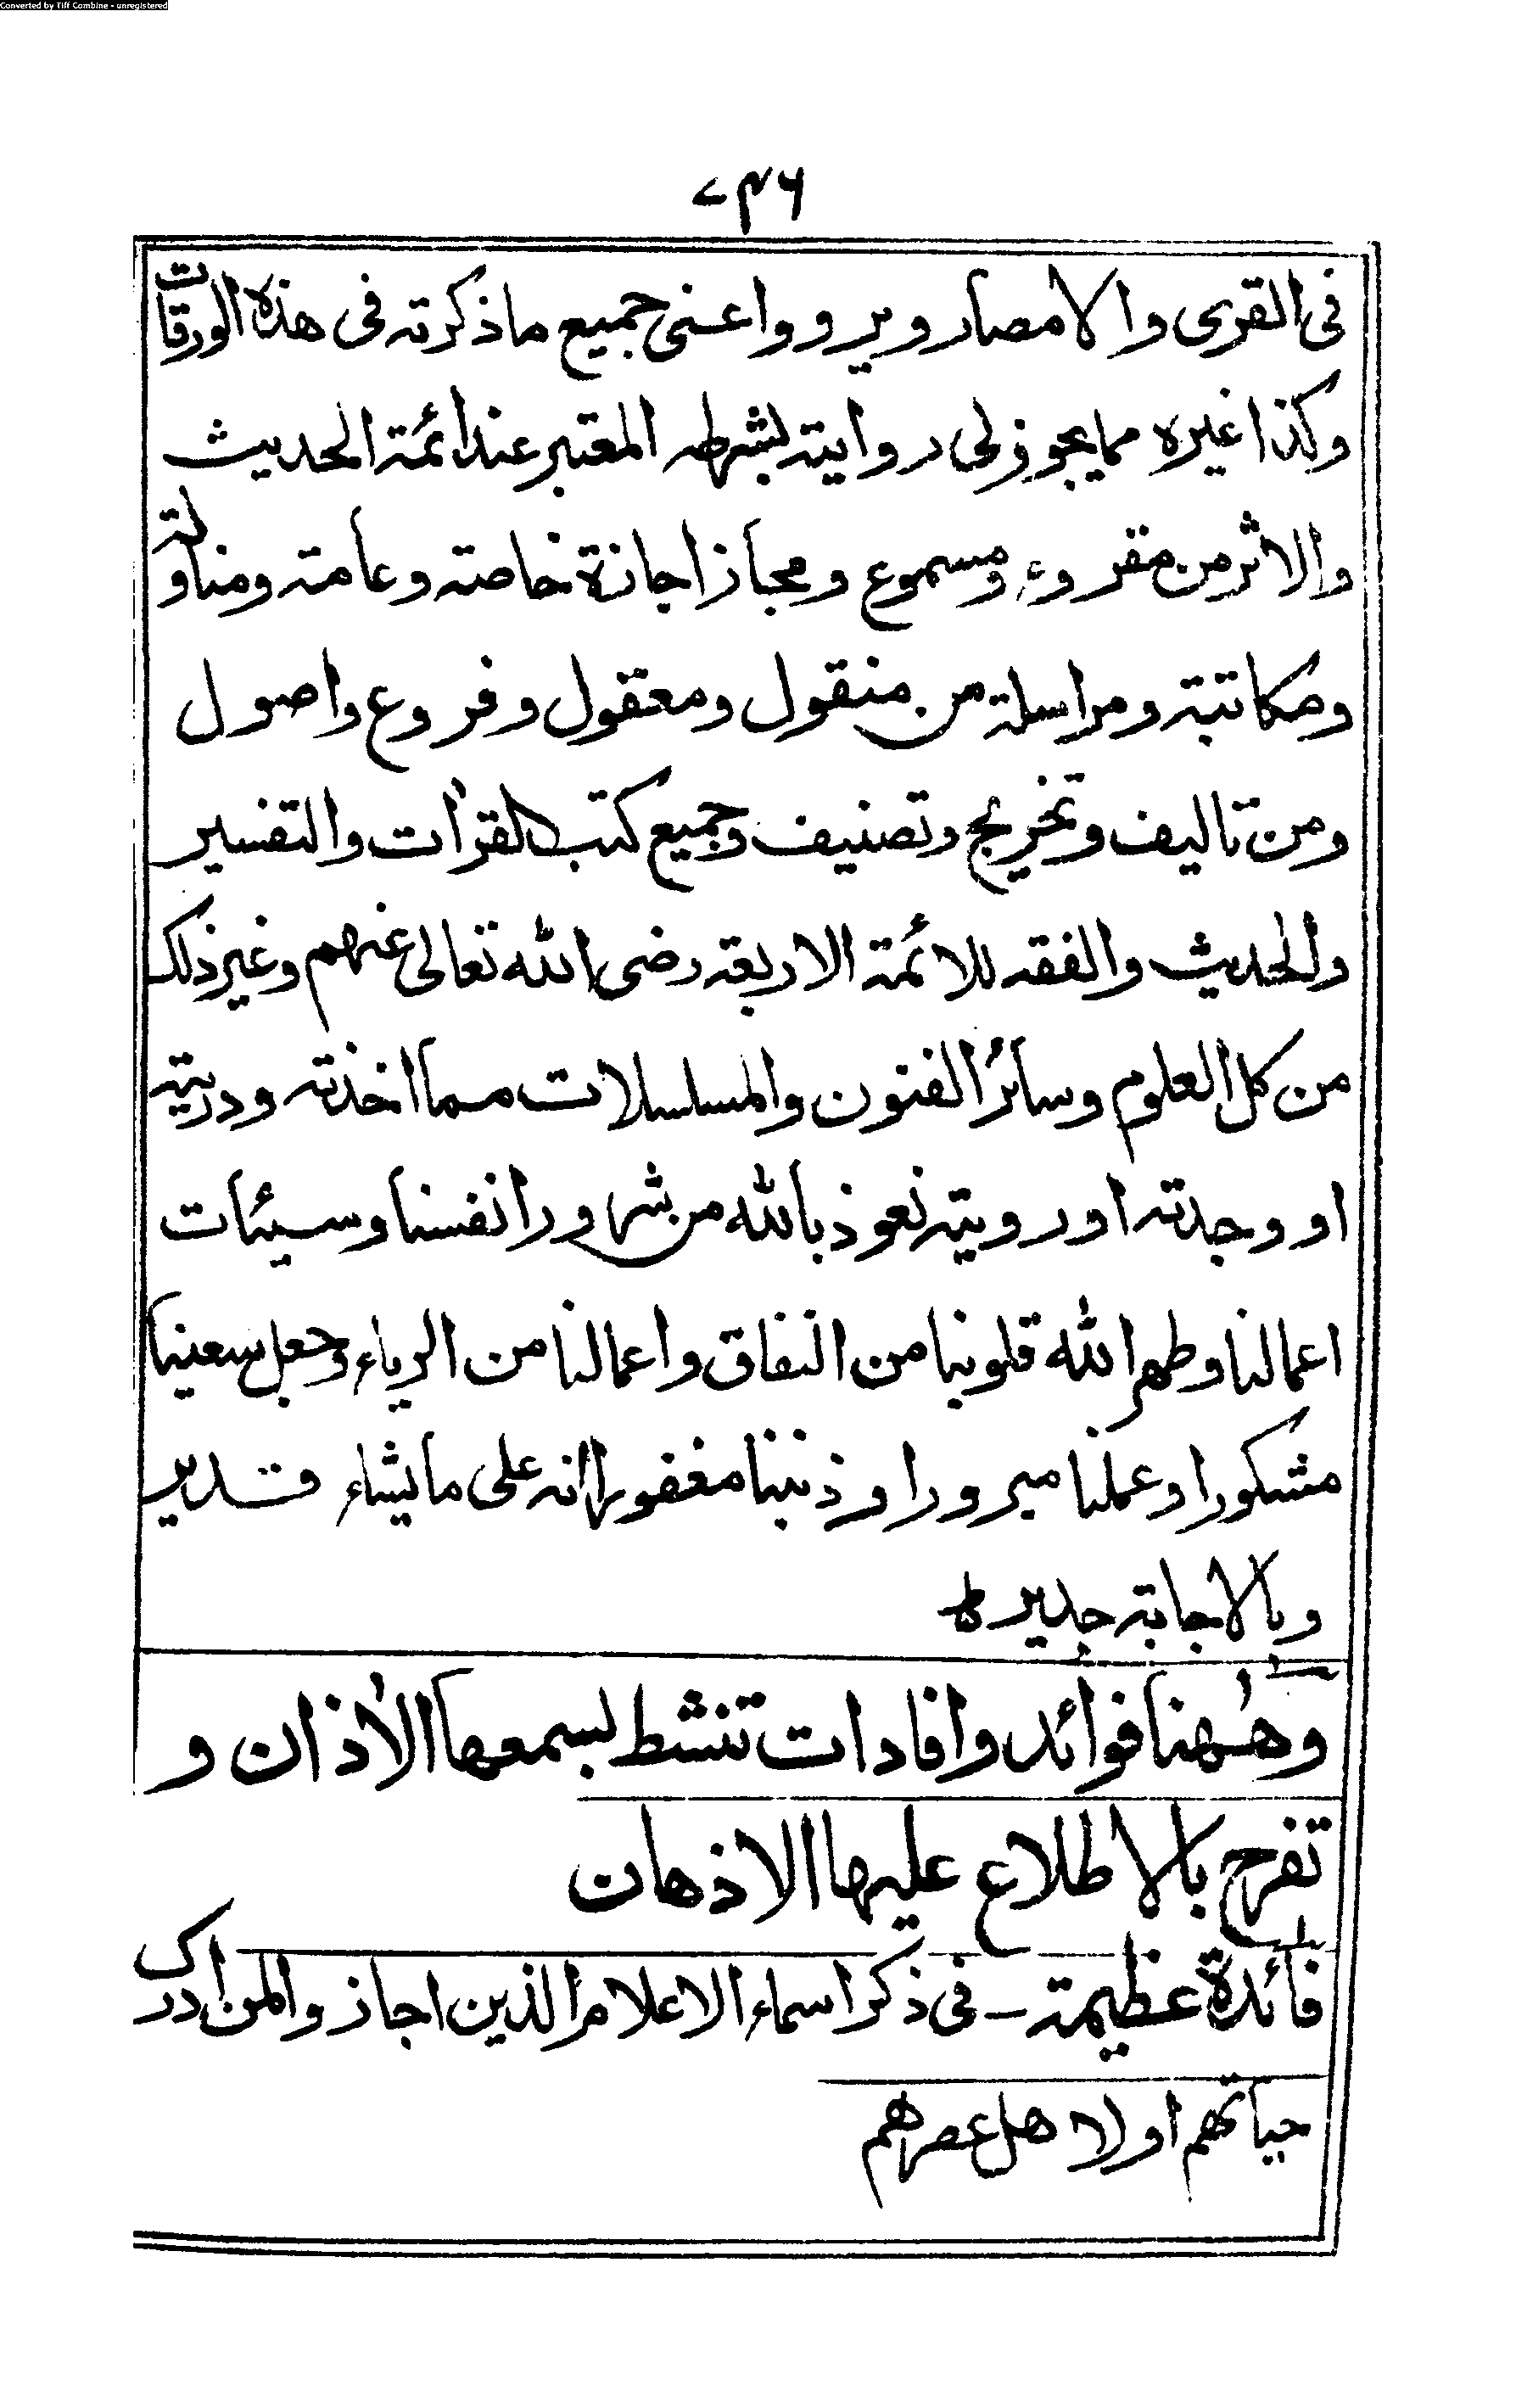 Converted by Tiff Combine - unregistered
فى القرى والامصار ويرووا عنى جميع ما ذكرته فى هذه الورقات
وكذا غيره مما يجوز لى روايته بشرطه المعتبر عند ائمة الحديث
والاثر من مقروء ومسموع ومجاز اجازة خاصته وعامته ومناولته
ومكاتبته ومراسلة من منقول ومعقول وفروع واصول
ومن تاليف وتخريج وتصنيف وجميع كتب القرأت والتفسير
والحديث والفقه للائمة الاربعة رضى الله تعالى عنهم وغير ذلك
من كل العلوم وسائر الفنون والمسلسلات مما اخذته ودريته
او وجدته او رويته نعوذ بالله من شرور انفسنا وسيئات
اعمالنا وطهر الله قلوبنا من النفاق واعمالنا من الرياء وجعل سعينا
مشكورا وعملنا مبرورا وذنبنا مغفورا انه على ما يشاء قدير
وبالاجابة جدير ط
وههنا فوائد وافادات تنشط بسمعها الاذان و
تفرح بالاطلاع عليها الاذهان
فائدة عظيمة - فى ذكر اسماء الاعلام الذين اجازوا لمن ادرك
حياتهم او لاهل عصرهم